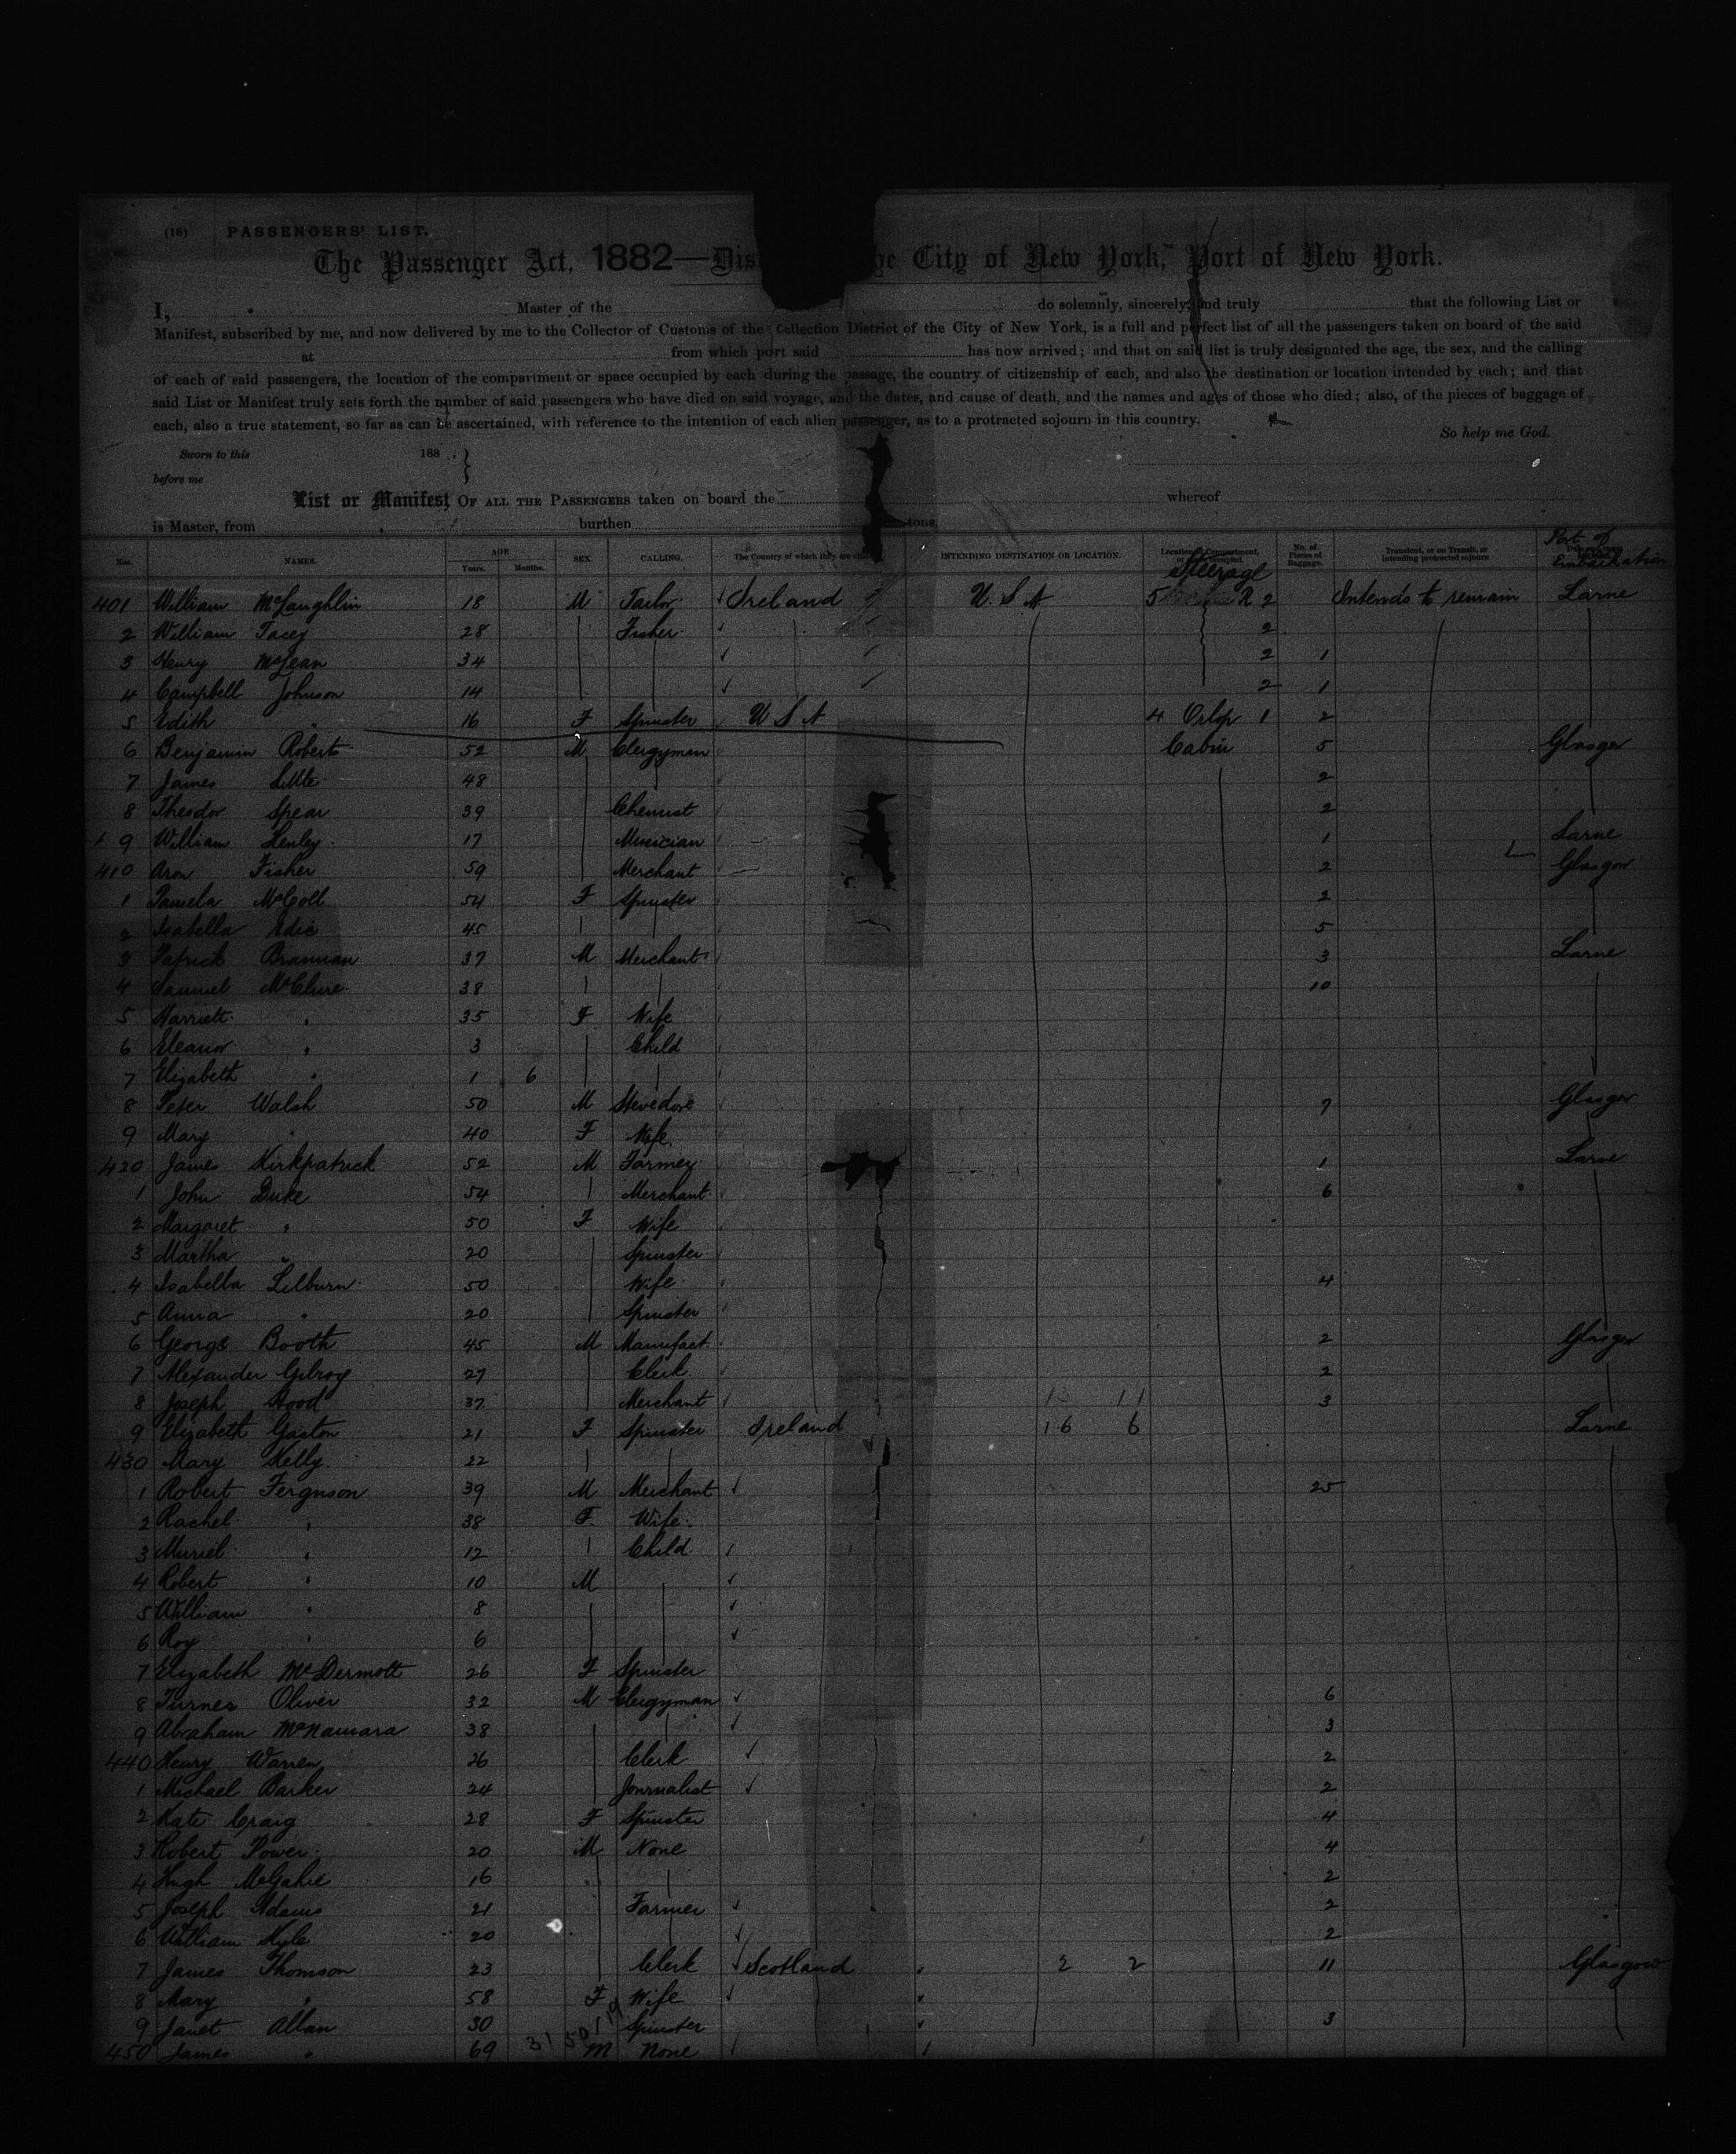 (18) PASSENGERS' LIST.
The Passenger Act, 1882— City of New York, Port of New York.
I, Master of the do solemnly, sincerely, and truly that the following List or
Manifest, subscribed by me, and now delivered by me to the Collector of Customs of the Collection District of the City of New York, is a full and perfect list of all the passengers taken on board of the said
at from which port said has now arrived; and that on said list is truly designated the age, the sex, and the calling
of each of said passengers, the location of the compartment or space occupied by each during the passage, the country of citizenship of each, and also the destination or location intended by each; and that
said List or Manifest truly sets forth the number of said passengers who have died on said voyage, and the dates, and cause of death, and the names and ages of those who died; also, of the pieces of baggage of
each, also a true statement, so far as can be ascertained, with reference to the intention of each alien passenger, as to a protracted sojourn in this country.
So help me God.
Sworn to this 188
before me
List or Manifest OF ALL THE PASSENGERS taken on board the whereof
is Master, from burthen tons,
Nos. NAMES. AGE Years. Months. SEX. CALLING. The Country of which they are INTENDING DESTINATION OR LOCATION. No. of Pieces of Baggage. Transient, or in Transit, or intending protracted sojourn Port of Embarkation
Steerage
401 William McLaughlin 18 M Tailor Ireland U.S A 5 R 2 Intends to remain Larne
2 William Tacey 28 Fisher 2
3 Henry McLean 34 2 1
4 Campbell Johnson 14 2 1
5 Edith " 16 F Spinster U S A 4 Orlop 1 2
6 Benjamin Roberts 52 M Clergyman Cabin 5 Glasgow
7 James Little 48 2
8 Theodor Spear 39 Chemist 2
9 William Henley 17 Musician 1 Larne
410 Aron Fisher 59 Merchant 2 Glasgow
1 Pamela McColl 54 F Spinster 2
2 Isabella Edie 45 5
3 Patrick Brannan 37 M Merchant 3 Larne
4 Samuel McClure 38 10
5 Harriett " 35 F Wife
6 Eleanor " 3 Child
7 Elizabeth " 1 6
8 Peter Walsh 50 M Stevedore 7 Glasgow
9 Mary " 40 F Wife
420 James Kirkpatrick 52 M Farmer 1 Larne
1 John Duke 54 Merchant 6
2 Margaret " 50 F Wife
3 Martha " 20 Spinster
4 Isabella Lilburn 50 Wife 4
5 Anna " 20 Spinster
6 George Booth 45 M Manufact. 2 Glasgow
7 Alexander Gilroy 27 Clerk 2
8 Joseph Hood 37 Merchant 13 11 3
9 Elizabeth Gaston 21 F Spinster Ireland 16 6 Larne
430 Mary Kelly 22
1 Robert Ferguson 39 M Merchant 25
2 Rachel " 38 F Wife
3 Muriel " 12 Child
4 Robert " 10 M
5 William " 8
6 Roy " 6
7 Elizabeth McDermott 26 F Spinster
8 Turner Oliver 32 M Clergyman 6
9 Abraham McNamara 38 3
440 Henry Warren 26 Clerk 2
1 Michael Barker 24 Journalist 2
2 Kate Craig 28 F Spinster 4
3 Robert Power 20 M None 4
4 Hugh McGahie 16 2
5 Joseph Adams 21 Farmer 2
6 William Kyle 20 2
7 James Thomson 23 Clerk Scotland 2 2 11 Glasgow
8 Mary " 58 F Wife
9 Janet Allan 30 Spinster 3
450 James " 69 M None